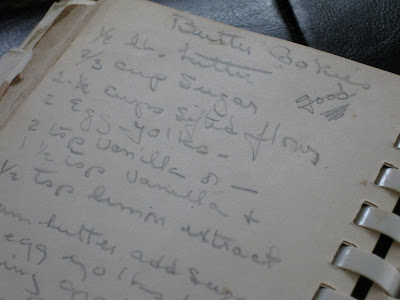 Butter Cookies
½ lb. butter
2/3 cup Sugar good
2½ cups sifted flour
2 egg yolks -
2 tsp Vanilla or -
1 ½ tsp Vanilla +
½ tsp lemon extract
butter add
egg yolks